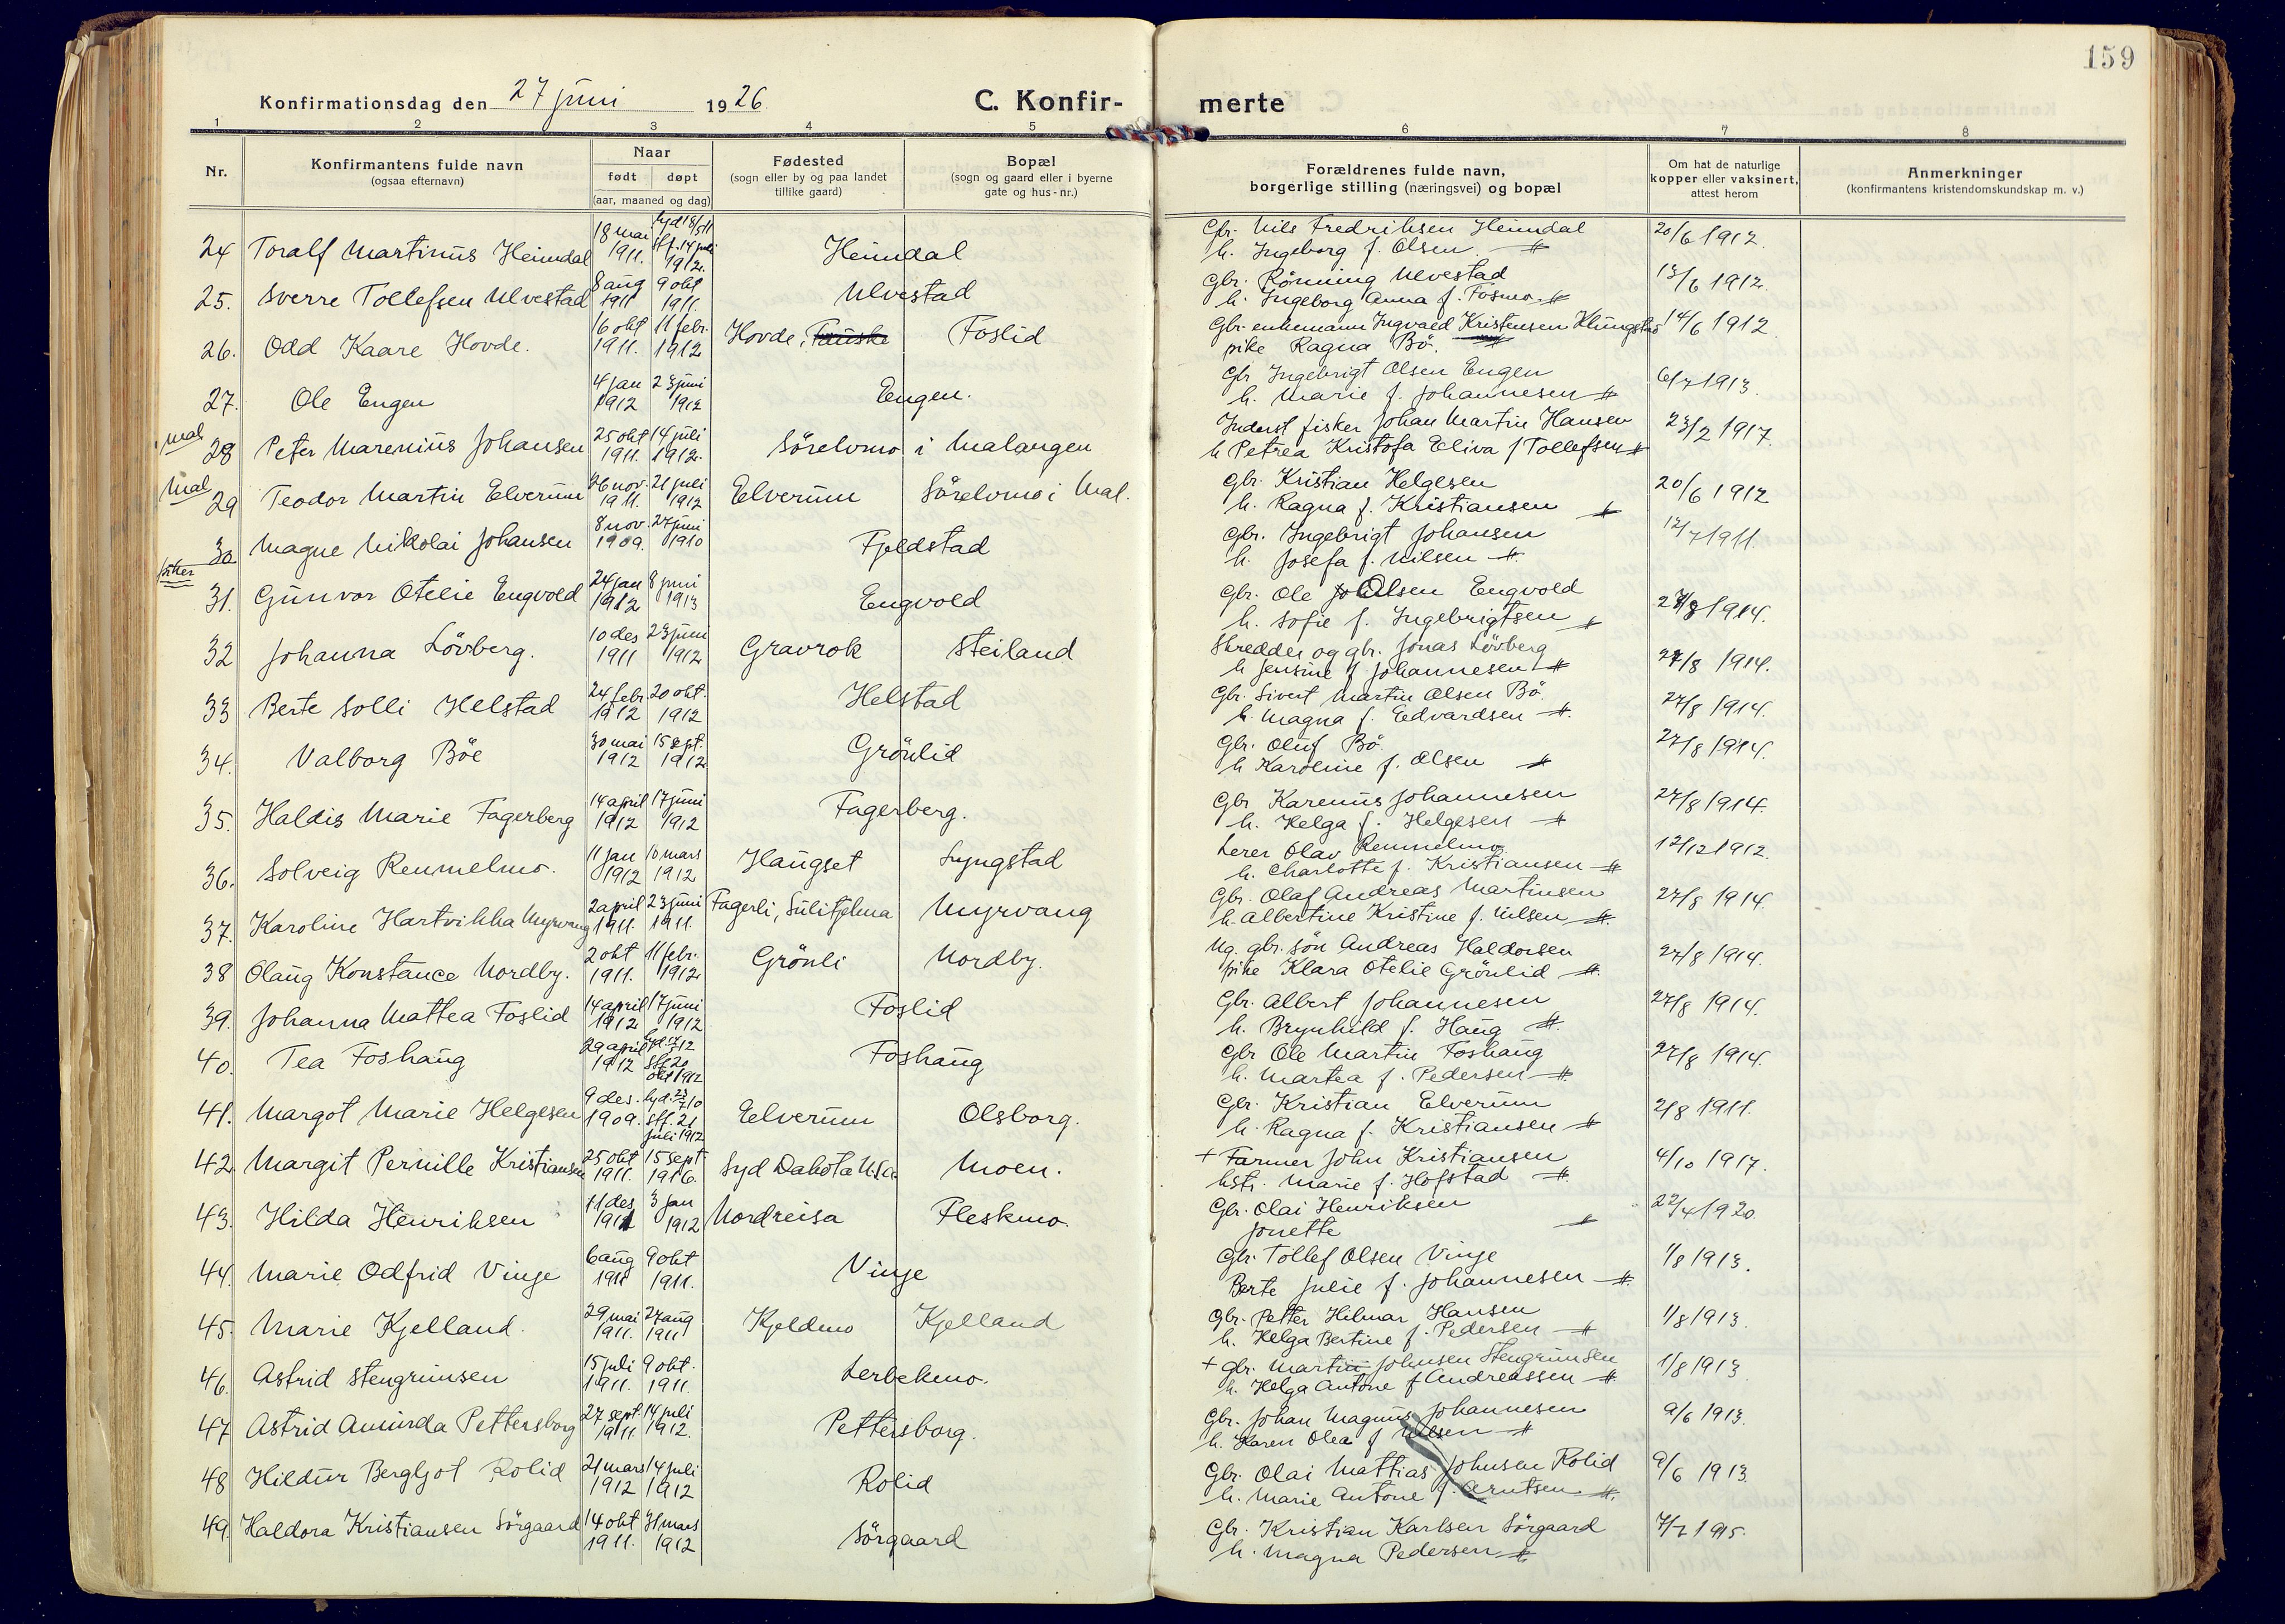 159
Konfirmationsdag den 27 juni 1926.
C. Konfirmerte
1 2 3 4 5 6 7 8
Nr.
Konfirmantens fulde navn
(ogsaa efternavn)
Naar
født døpt
(aar, maaned og dag)
Fødested
(sogn eller by og paa landet
tillike gaard)
Bopæl
(sogn og gaard eller i byerne
gate og hus-nr.)
Forældrenes fulde navn,
borgerlige stilling (næringsvei) og bopæl
Om hat de naturlige
kopper eller vaksinert,
attest herom
Anmerkninger
(konfirmantens kristendomskundskap m. v.)
24 Toralf Martinus Heimdal 18 mai 1911. hjd 18/5 11 stf. 14 juli 1912. Heimdal
Gbr. Nils Fredriksen Heimdal 20/6 1912.
h. Ingeborg f. Olsen
25. Sverre Tollefsen Ulvestad 8 aug 1911 9 okt 1911. Ulvestad
Gbr. Rönning Ulvestad 13/6 1912.
h. Ingeborg Anna f. Fosmo
26. Odd Kaare Hovde. 16 okt 1911. 11 febr. 1912 Hovde, Fauske Foslid
Gbr. enkemann Ingvald Kristensen Klungstad 14/6 1912
pike Ragna Bö.
27. Ole Engen 4 jan 1912 23 juni 1912 Engen.
Gbr Ingebrigt Olsen Engen 6/7 1913.
h. Marie f. Johannesen
Mal
28 Peter Marenius Johansen 25 okt 1911. 14 juli 1912. Sörelvmo i Malangen
Inderst fisker Johan Martin Hansen 23/2 1917.
h Petrea Kristofa Eliva f Tollefsen
Mal
29 Teodor Martin Elverum 26 nov. 1911. 21 juli 1912 Elverum Sörelvmo i Mal.
Gbr. Kristian Helgesen 20/6 1912
h. Ragna f. Kristiansen
30 Magne Nikolai Johansen 8 nov. 1909. 27 juni 1910 Fjeldstad
Gbr. Ingebrigt Johansen 12/7 1911.
h. Josefa f. Nilsen
piker
31. Gunvor Otelie Engvold 24 jan 1912 8 juni 1913 Engvold
Gbr. Ole Olsen Engvold 27/8 1914.
h. Sofie f. Ingebrigtsen
32 Johanna Lövberg. 10 des 1911 23 juni 1912 Gravrok Steiland
Skredder og gbr. Jonas Lövberg 27/8 1914.
h Jensine f Johannesen
33 Berte Solli Helstad 24 febr. 1912 20 okt. 1912 Helstad
Gbr. Sivert Martin Olsen Bö 27/8 1914.
h. Magna f. Edvardsen
34. Valborg Böe 30 mai 1912 15 sept. 1912 Grönlid
Gbr. Oluf Bö. 27/8 1914.
h Karoline f. Olsen
35. Haldis Marie Fagerberg 14 april 1912 17 juni 1912 Fagerberg.
Gbr Karenius Johannesen 27/8 1914.
h. Helga f. Helgesen
36. Solveig Remmelmo. 11 jan 1912 10 mars 1912 Haugset Lyngstad
Lerer Olav Remmelmo 12/12 1912.
h. Charlotte f. Kristiansen
37. Karoline Hartvikka Myrvang 2 april 1911. 23 juni 1911. Fagerli, Sulitjelma Myrvang
Gbr. Olaf Andreas Martinsen 27/8 1914.
h. Albertine Kristine f. Nilsen
38 Olaug Konstance Nordby. 2 okt 1911. 11 febr. 1912 Grönli Nordby.
Ug. gbr. sön Andreas Haldorsen 27/8 1914.
pike Klara Otelie Grönlid
39. Johanna Mattea Foslid 14 april 1912 17 juni 1912 Foslid
Gbr. Albert Johannesen 27/8 1914.
h. Brynhild f. Haug
40. Tea Foshaug 29 april 1912 stf 20 okt 1912 Foshaug
Gbr Ole Martin Foshaug 27/8 1914.
h. Martea f. Pedersen
41. Margot Marie Helgesen 9 des. 1909. hjd. 23/7 10 stf. 21 juli 1912 Elverum Olsborg.
Gbr. Kristian Elverum 2/8 1911.
h. Ragna f. Kristiansen
42. Margit Pernille Kristiansen 25 okt 1911. 15 sept 1916. Syd Dakota U.S.a. Moen.
+ Farmer John Kristiansen 4/10 1917.
hstr. Marie f. Hofstad
43. Hilda Henriksen 11 des 1911 3 jan 1912 Nordreisa Fleskmo.
Gbr. Olai Henriksen 22/4 1920.
Jonette
44. Marie Odfrid Vinje 6 aug 1911 9 okt 1911. Vinje
Gbr. Tollef Olsen Vinje 1/8 1913.
Berte Julie f. Johannesen
45. Marie Kjelland. 29 mai 1911. 27 aug 1911 Kjeldmo Kjelland
Gbr. Petter Hilmar Hansen 1/8 1913.
h. Helga Bertine f. Pedersen
46. Astrid Stengrimsen 15 juli 1911. 9 okt. 1911. Lerbekmo.
+ Gbr. Martin Johnsen Stengrimsen 1/8 1913
h. Helga Antone f Andreassen
47 Astrid Aminda Pettersborg 27 sept. 1911. 14 juli 1912. Pettersborg.
Gbr. Johan Magnus Johannesen 9/6 1913.
h. Karen Olea f Nilsen
48 Hildur Bergljot Rolid 21 mars 1912 14 juli 1912 Rolid
Gbr. Olai Mattias Johnsen Rolid 9/6 1913.
h. Marie Antone f. Arntsen
49. Haldora Kristiansen Sörgaard 14 okt 1911. 31 mars 1912 Sörgaard
Gbr. Kristian Karlsen Sörgaard 7/7 1915.
h. Magna Pedersen